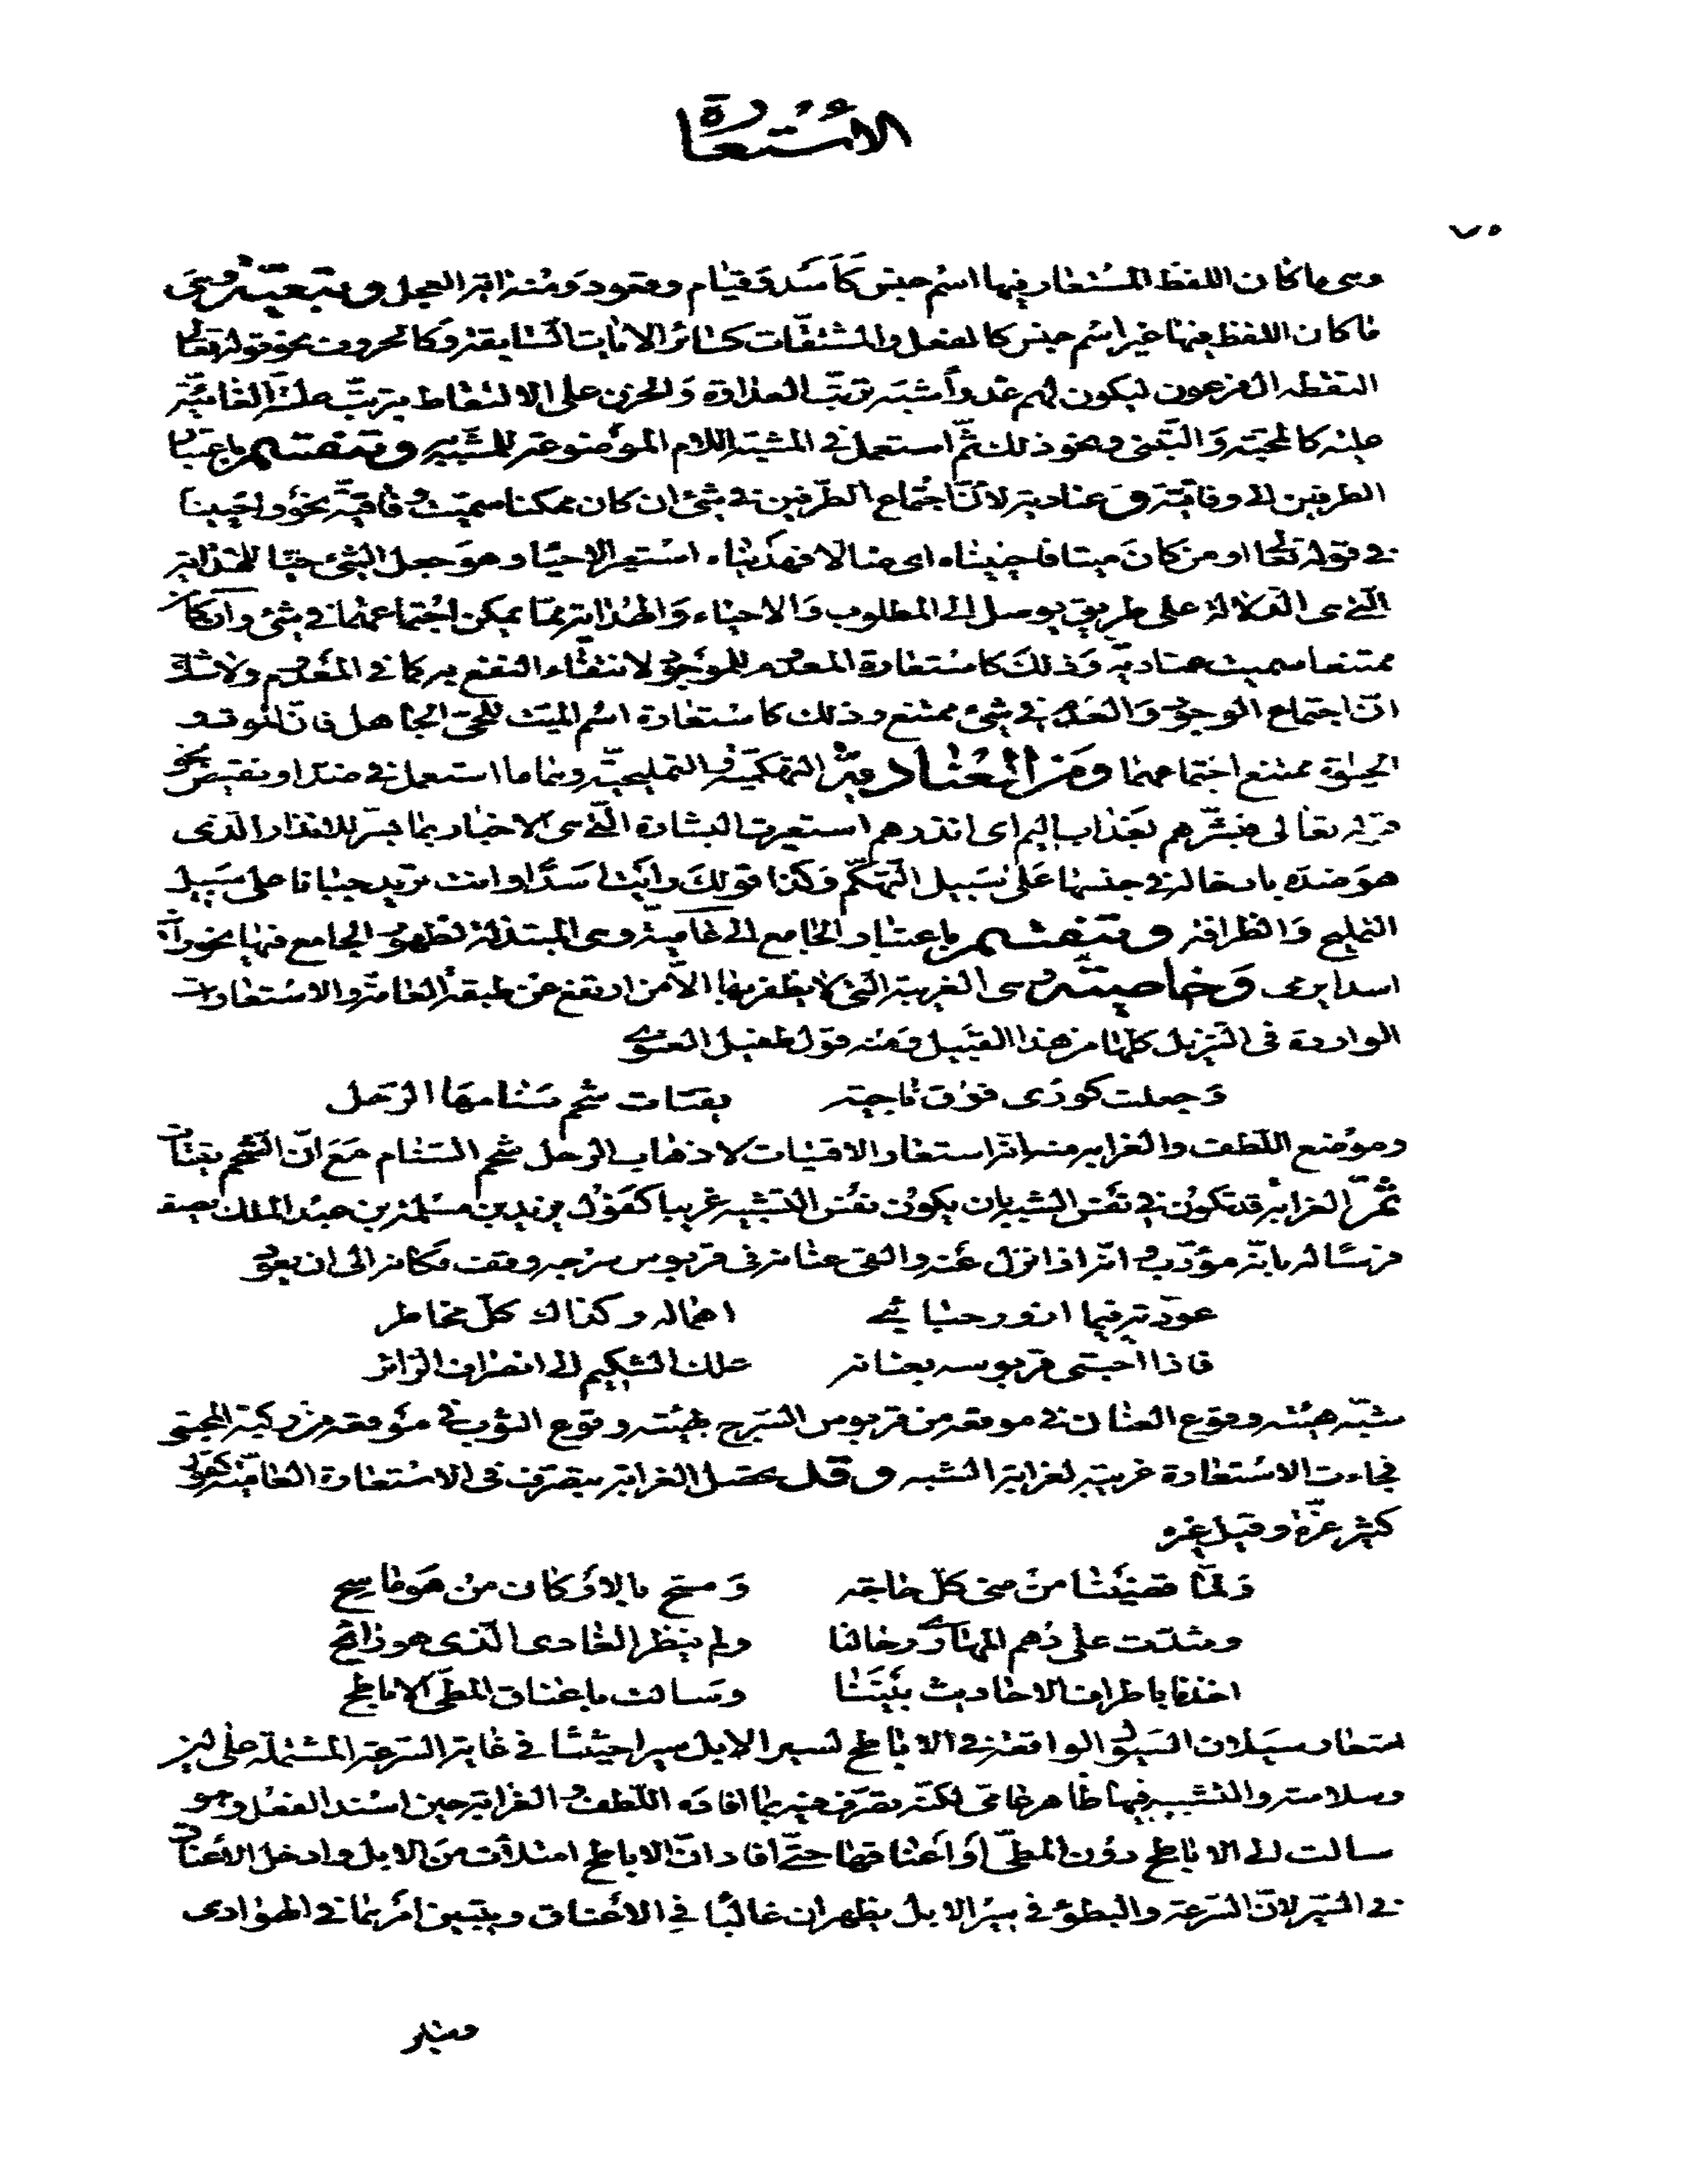 الاستعارة
٧٠
وهى ما كان اللفظ المستعار فيها اسم جنس كاسد وقيام وقعود ومنه اية العجل وتبعيّة وهى
ما كان اللفظ فيها غير اسم جنس كالفعل والمشتقّات كسائر الايات السّابقة وكالحروف نحو قوله تعالى
التقطه ال فرعون ليكون لهم عدوا شبّه ترتّب العداوة والحزن على الالتقاط بترتّب علته الغائيّة
عليه كالمحبّة والتّبنى ونحو ذلك ثمّ استعمل فى المشبّه اللام الموضوعة للمشبّه به وتنقسم باعتبار
الطرفين الى وفاقيّة وعناديّة لانّ اجتماع الطّرفين فى شئ ان كان ممكنا سميّت وفاقيّة نحو احييناه
فى قوله تعالى او من كان ميتا فاحييناه اى ضالا فهديناه استعير الاحياء وهو جعل الشئ حيّا للهداية
الّتى هى الدّلالة على طريق يوصل الى المطلوب والاحياء والهداية ممّا يمكن اجتماعهما فى شئ وان كان
ممتنعا سميت عناديّة وذلك كاستعارة المعدوم للموجود لانتفاء النفع به كما فى المعدوم ولا شك
انّ اجتماع الوجود والعدم فى شئ ممتنع وذلك كاستعارة اسم الميّت للحىّ الجاهل فانّ الموت و
الحيوة ممتنع اجتماعهما ومن العناديّة التهكميّة والتمليحيّة وهما ما استعمل فى ضدّ او نقيض نحو
قوله تعالى فبشّرهم بعذاب اليم اى انذرهم استعيرت البشارة الّتى هى الاخبار بما يسرّ للانذار الذى
هو ضدّه بادخاله فى جنسها على سبيل التهكّم وكذا قولك رايت اسدًا وانت تريد جبانا على سبيل
التمليح والظرافة وتنقسم باعتبار الجامع الى عاميّة وهى المبتذلة لظهور الجامع فيها نحو رايت
اسدا يرمى وخاصيّة وهى الغريبة التى لا يظفر بها الّا من ارتفع عن طبقة العامّة والاستعارات
الواردة فى التنزيل كلّها من هذا القبيل ومنه قول طفيل الغنوى
وجعلت كورى فوق ناجية يقتات شحم سنامها الرّحل
وموضع اللّطف والغرابة منه انّه استعار الاقتيات لاذهاب الرحل شحم السّنام مع انّ الشّحم يقتات
ثمّ الغرابة قد تكون فى نفس الشبه بان يكون نفس التشبيه غريبا كقول يزيد بن مسلمة بن عبد الملك يصف
فرسا له بانّه مؤدّب وانّه اذا نزل عنه والقى عنانه فى قربوس سرجه وقف مكانه الى ان يعود
عوّدته فيما ازور حبائبى اهماله وكذاك كلّ مخاطر
فاذا احتبى قربوسه بعنانه علك الشكيم الى انصراف الزّائر
شبّه هيئته وقوع العنان فى موقعه من قربوس السّرج بهيئته وقوع الثّوب فى موقعه من ركبة المحتبى
فجاءت الاستعارة غريبة لغرابة الشبه وقد تحصل الغرابة بتصرّف فى الاستعارة العاميّة كقول
كثير عزّة وقيل غيره
ولمّا قضينا من منى كلّ حاجة ومسّح بالاركان من هو ماسح
وشدّت على دُهم المهارى رحالنا ولم ينظر الغادى الّذى هو رائح
اخذنا باطراف الاحاديث بيننا وسالت باعناق المطىّ الاباطح
استعار سيلان السّيول الواقعة فى الاباطح لسير الابل سيرا حثيثا فى غاية السّرعة المشتملة على لين
وسلامة والتشبيه فيها ظاهر عامى لكنّه تصرّف فيه بما افاده اللّطف والغرابة حين اسند الفعل وهو
سالت الى الاباطح دون المطىّ او اعناقها حتّى افاد انّ الاباطح امتلأت من الابل وادخل الأعناق
فى السّير لانّ السّرعة والبطؤ فى سير الابل يظهران غالبًا فى الأعناق ويتبين أمرهما فى الهوادى